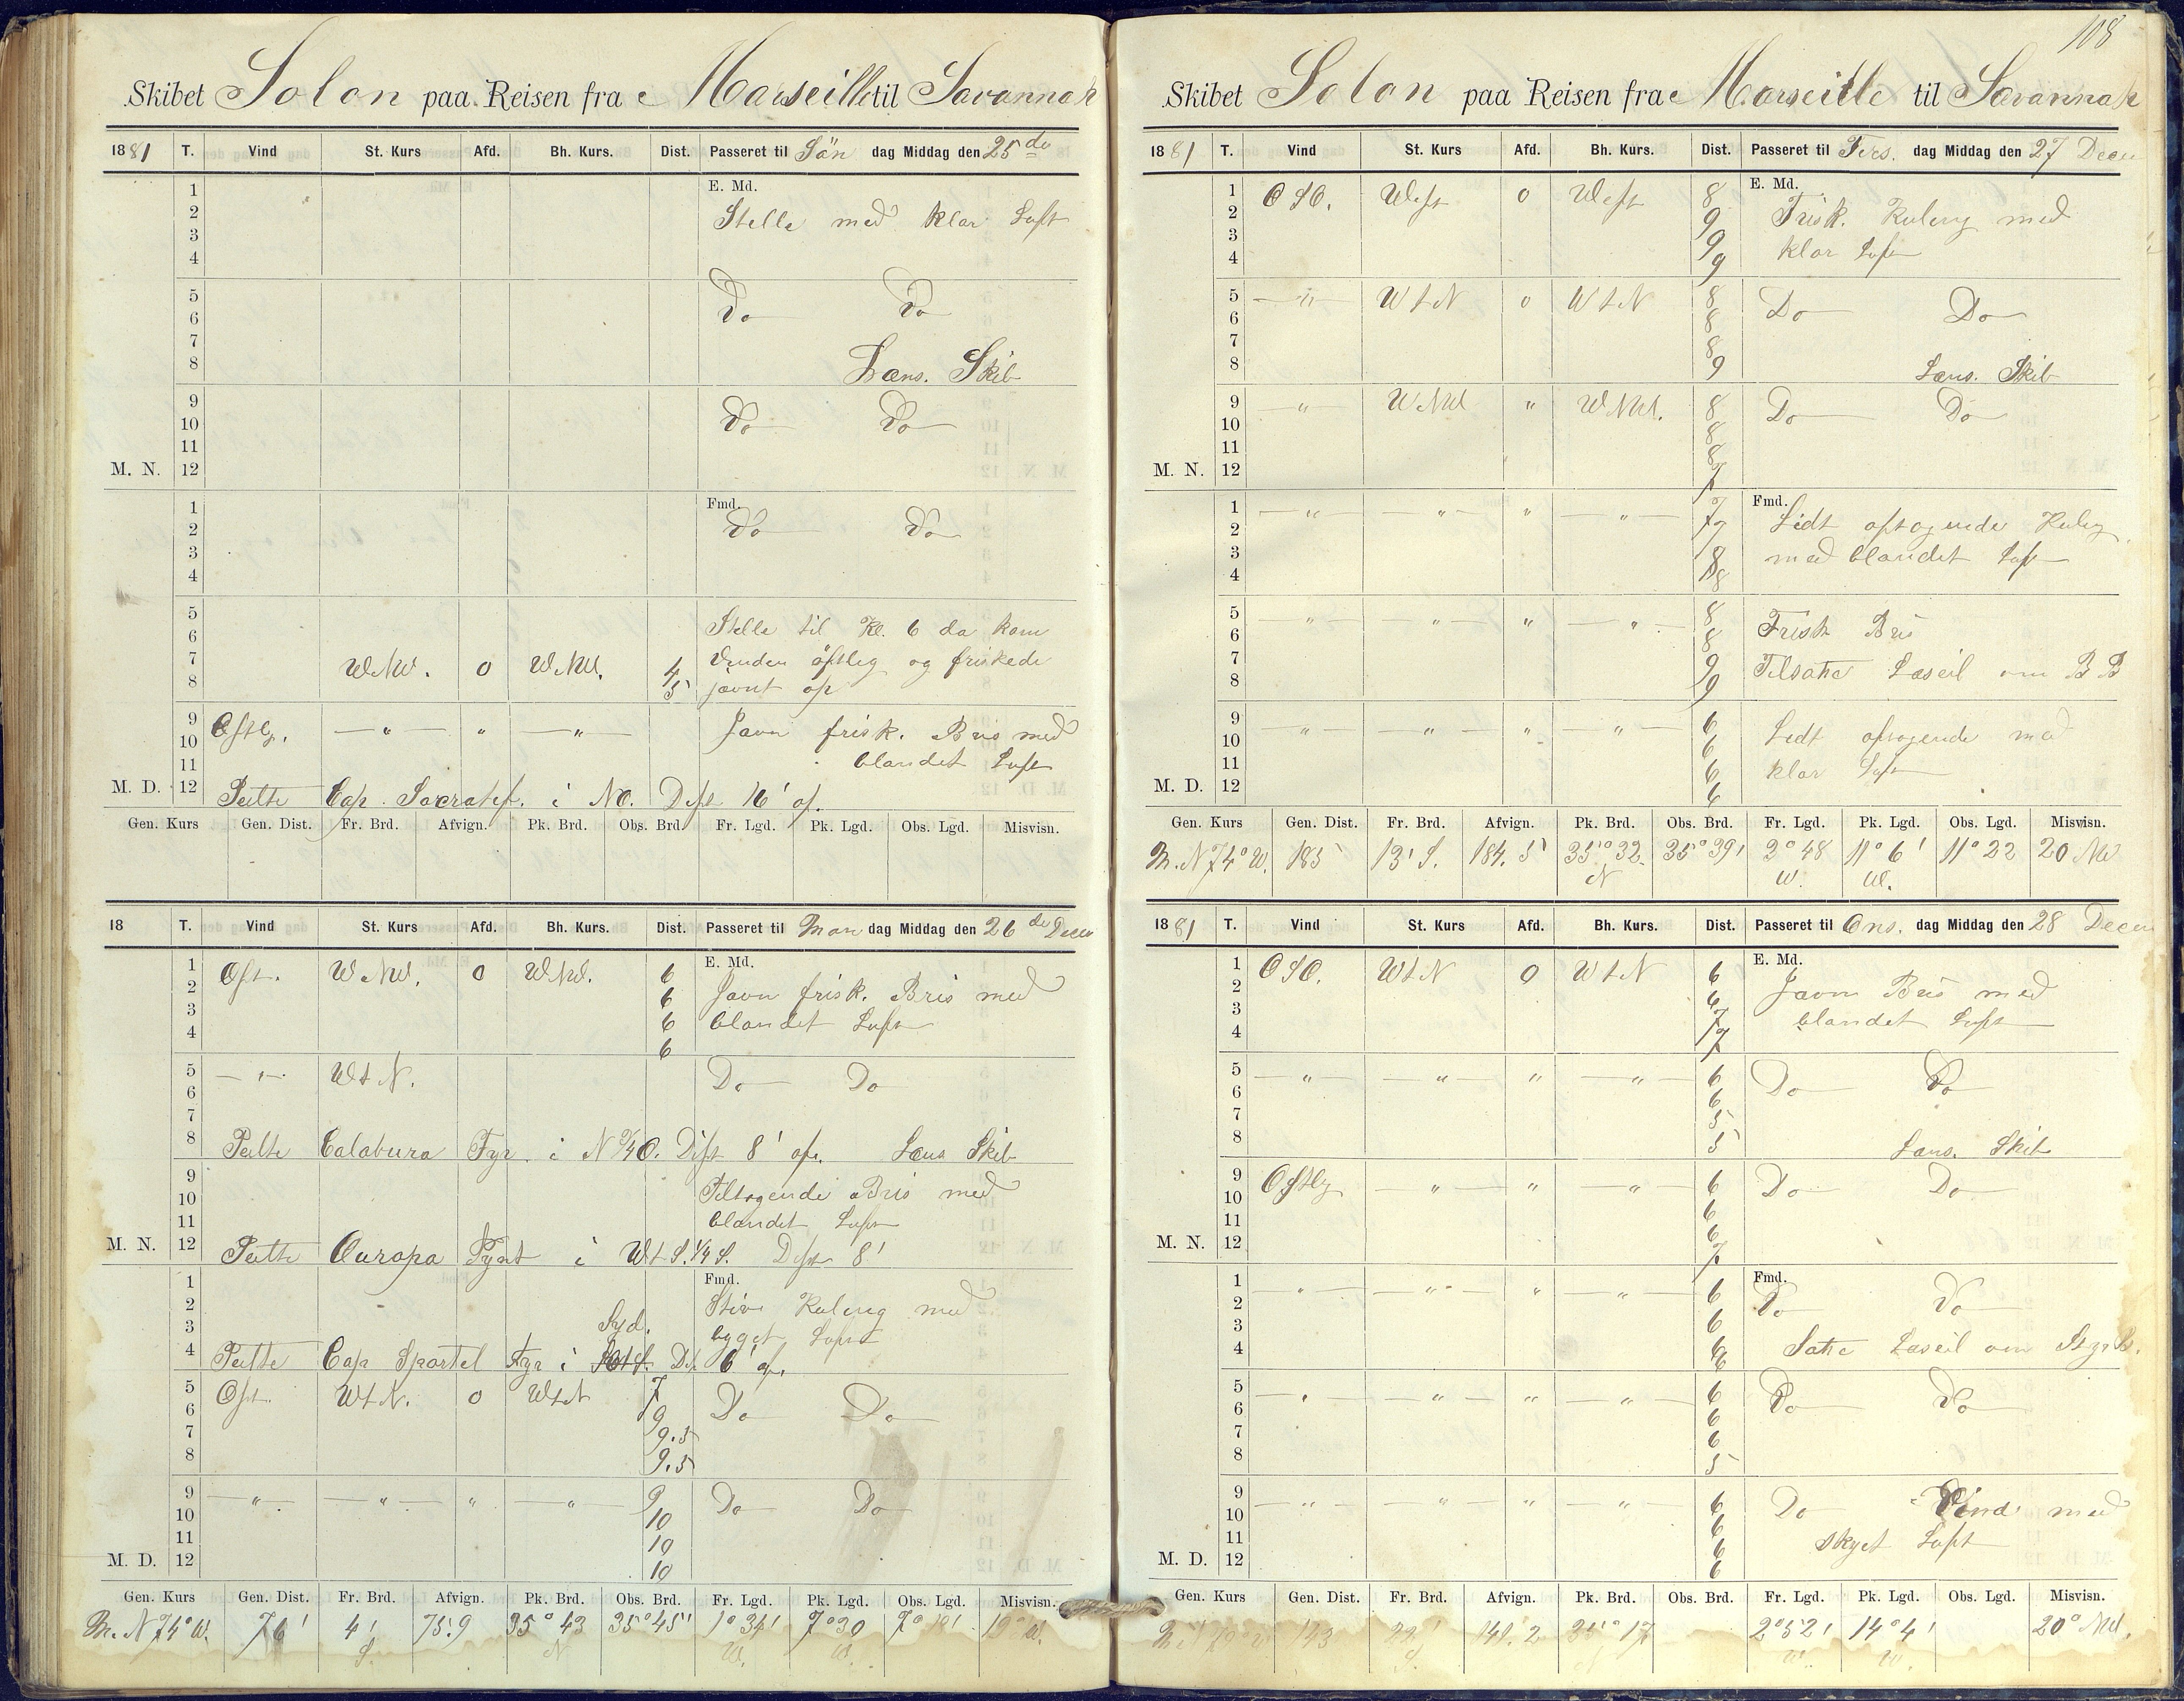 Skibet Solon paa Reisen fra Marseille til Savannah
1881 T. Vind St. Kurs Afd. Bh. Kurs. Dist. Passeret til Sön dag Middag den 25de
1 E. Md.
2 Stelle med klar Luft
3
4
5 Do Do
6
7
8 Læns. Skib
9 Do Do
10
11
M. N. 12
1 Fmd.
2 Do Do
3
4
5 Stelle til Kl. 6 da kom
6
7 WNW. 0 WNW. 4 Vinden östlig og friskede
8 5 jævnt op
9 Ostlg. — " — " — " — Javn frisk. Bris med
10
11 blandet Luft
M. D. 12 Peilte Cap Sacratif. i NO. Dist 16' af.
Gen. Kurs Gen. Dist. Fr. Brd. Afvign. Pk. Brd. Obs. Brd. Fr. Lgd. Pk. Lgd. Obs. Lgd. Misvisn.
18 T. Vind St. Kurs Afd. Bh. Kurs. Dist. Passeret til Man dag Middag den 26de Decem
1 Ost. WNW. 0 WNW. 6 E. Md.
2 6 Javn frisk. Bris med
3 6 blandet Luft
4 6
5 — " — WtN. Do Do
6
7
8 Peilte Calabura Fyr. i N 3/4 O. Dist 8' af. Læns Skib
9 Tiltagende Bris med
10
11 blandet Luft
M. N. 12 Peilte Europa Pynt i WtS. 1/4 S. Dist 8'
1 Fmd.
2 Stiv Kuling med
3 Syd. bygget Luft
4 Peilte Cap Spartel Fyr i Dis. 6' af.
5 Ost. WtN. 0 WtN 7 Do Do
6 9
7 9.5
8 9.5
9 — " — — " — " — " — 9 Do Do
10 10
11 10
M. D. 12 10
Gen. Kurs Gen. Dist. Fr. Brd. Afvign. Pk. Brd. Obs. Brd. Fr. Lgd. Pk. Lgd. Obs. Lgd. Misvisn.
M. N 74° W. 76' 4' S. 75.9 35° 43 N 35° 45' 1° 34' W. 7° 30 W. 7° 10' 19° W.
108
Skibet Solon paa Reisen fra Marseille til Savannah
1881 T. Vind St. Kurs Afd. Bh. Kurs. Dist. Passeret til Tirs. dag Middag den 27 Decem
1 OSO. West 0 West 8 E. Md.
2 9 Frisk. Kuling med
3 9 klar Luft
4 9
5 — " — WtN 0 WtN 8 Do Do
6 8
7 8
8 9 Læns. Skib
9 — " — WNW " WNW. 8 Do Do
10 8
11 8
M. N. 12 7
1 — " — — " — " — " — 7 Fmd. Lidt aftagende Kuling
2 7
3 8 med blandet Luft
4 8
5 — " — — " — " — " — 8 Frisk Bris
6 8
7 9 Tilsatte Læseil om BB
8 9
9 — " — — " — " — " — 6 Lidt aftagende med
10 6
11 6 klar Luft
M. D. 12 6
Gen. Kurs Gen. Dist. Fr. Brd. Afvign. Pk. Brd. Obs. Brd. Fr. Lgd. Pk. Lgd. Obs. Lgd. Misvisn.
M. N 74° W. 185 13' S. 184.5 35° 32 N 35° 39' 2° 48 W. 11° 6' W. 11° 22 20 NW
1881 T. Vind St. Kurs Afd. Bh. Kurs. Dist. Passeret til Ons. dag Middag den 28 Decem
1 OSO. WtN 0 WtN 6 E. Md.
2 6 Javn Bris med
3 7 blandet Luft
4 7
5 — " — — " — " — " — 6 Do Do
6 6
7 5
8 5 Læns. Skib
9 Ostlg — " — " — " — 6 Do Do
10 6
11 6
M. N. 12 7
1 — " — — " — " — " — 6 Fmd.
2 6 Do Do
3 6
4 6 Satte Læseil om Styrb.
5 — " — — " — " — " — 6 Do Do
6 6
7 6
8 5
9 — " — — " — " — " — 6 Do Vind med
10 6
11 6 skyet Luft
M. D. 12 6
Gen. Kurs Gen. Dist. Fr. Brd. Afvign. Pk. Brd. Obs. Brd. Fr. Lgd. Pk. Lgd. Obs. Lgd. Misvisn.
143 22' S. 141.2 35° 17 N 2° 52' W. 14° 4' W. 20° NW.